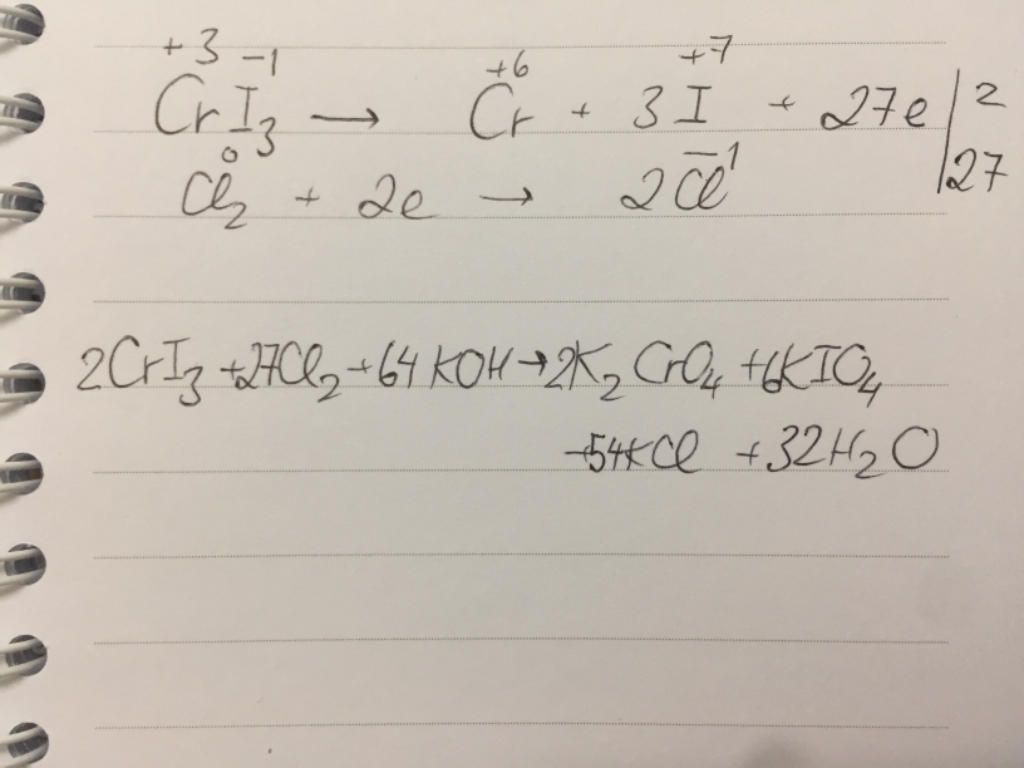 +3 -1 +6 +7
CrI₃ → Cr + 3I + 27e | 2
0 -1
Cl₂ + 2e → 2Cl | 27
2CrI₃ + 27Cl₂ + 64KOH → 2K₂CrO₄ + 6KIO₄
+54KCl + 32H₂O